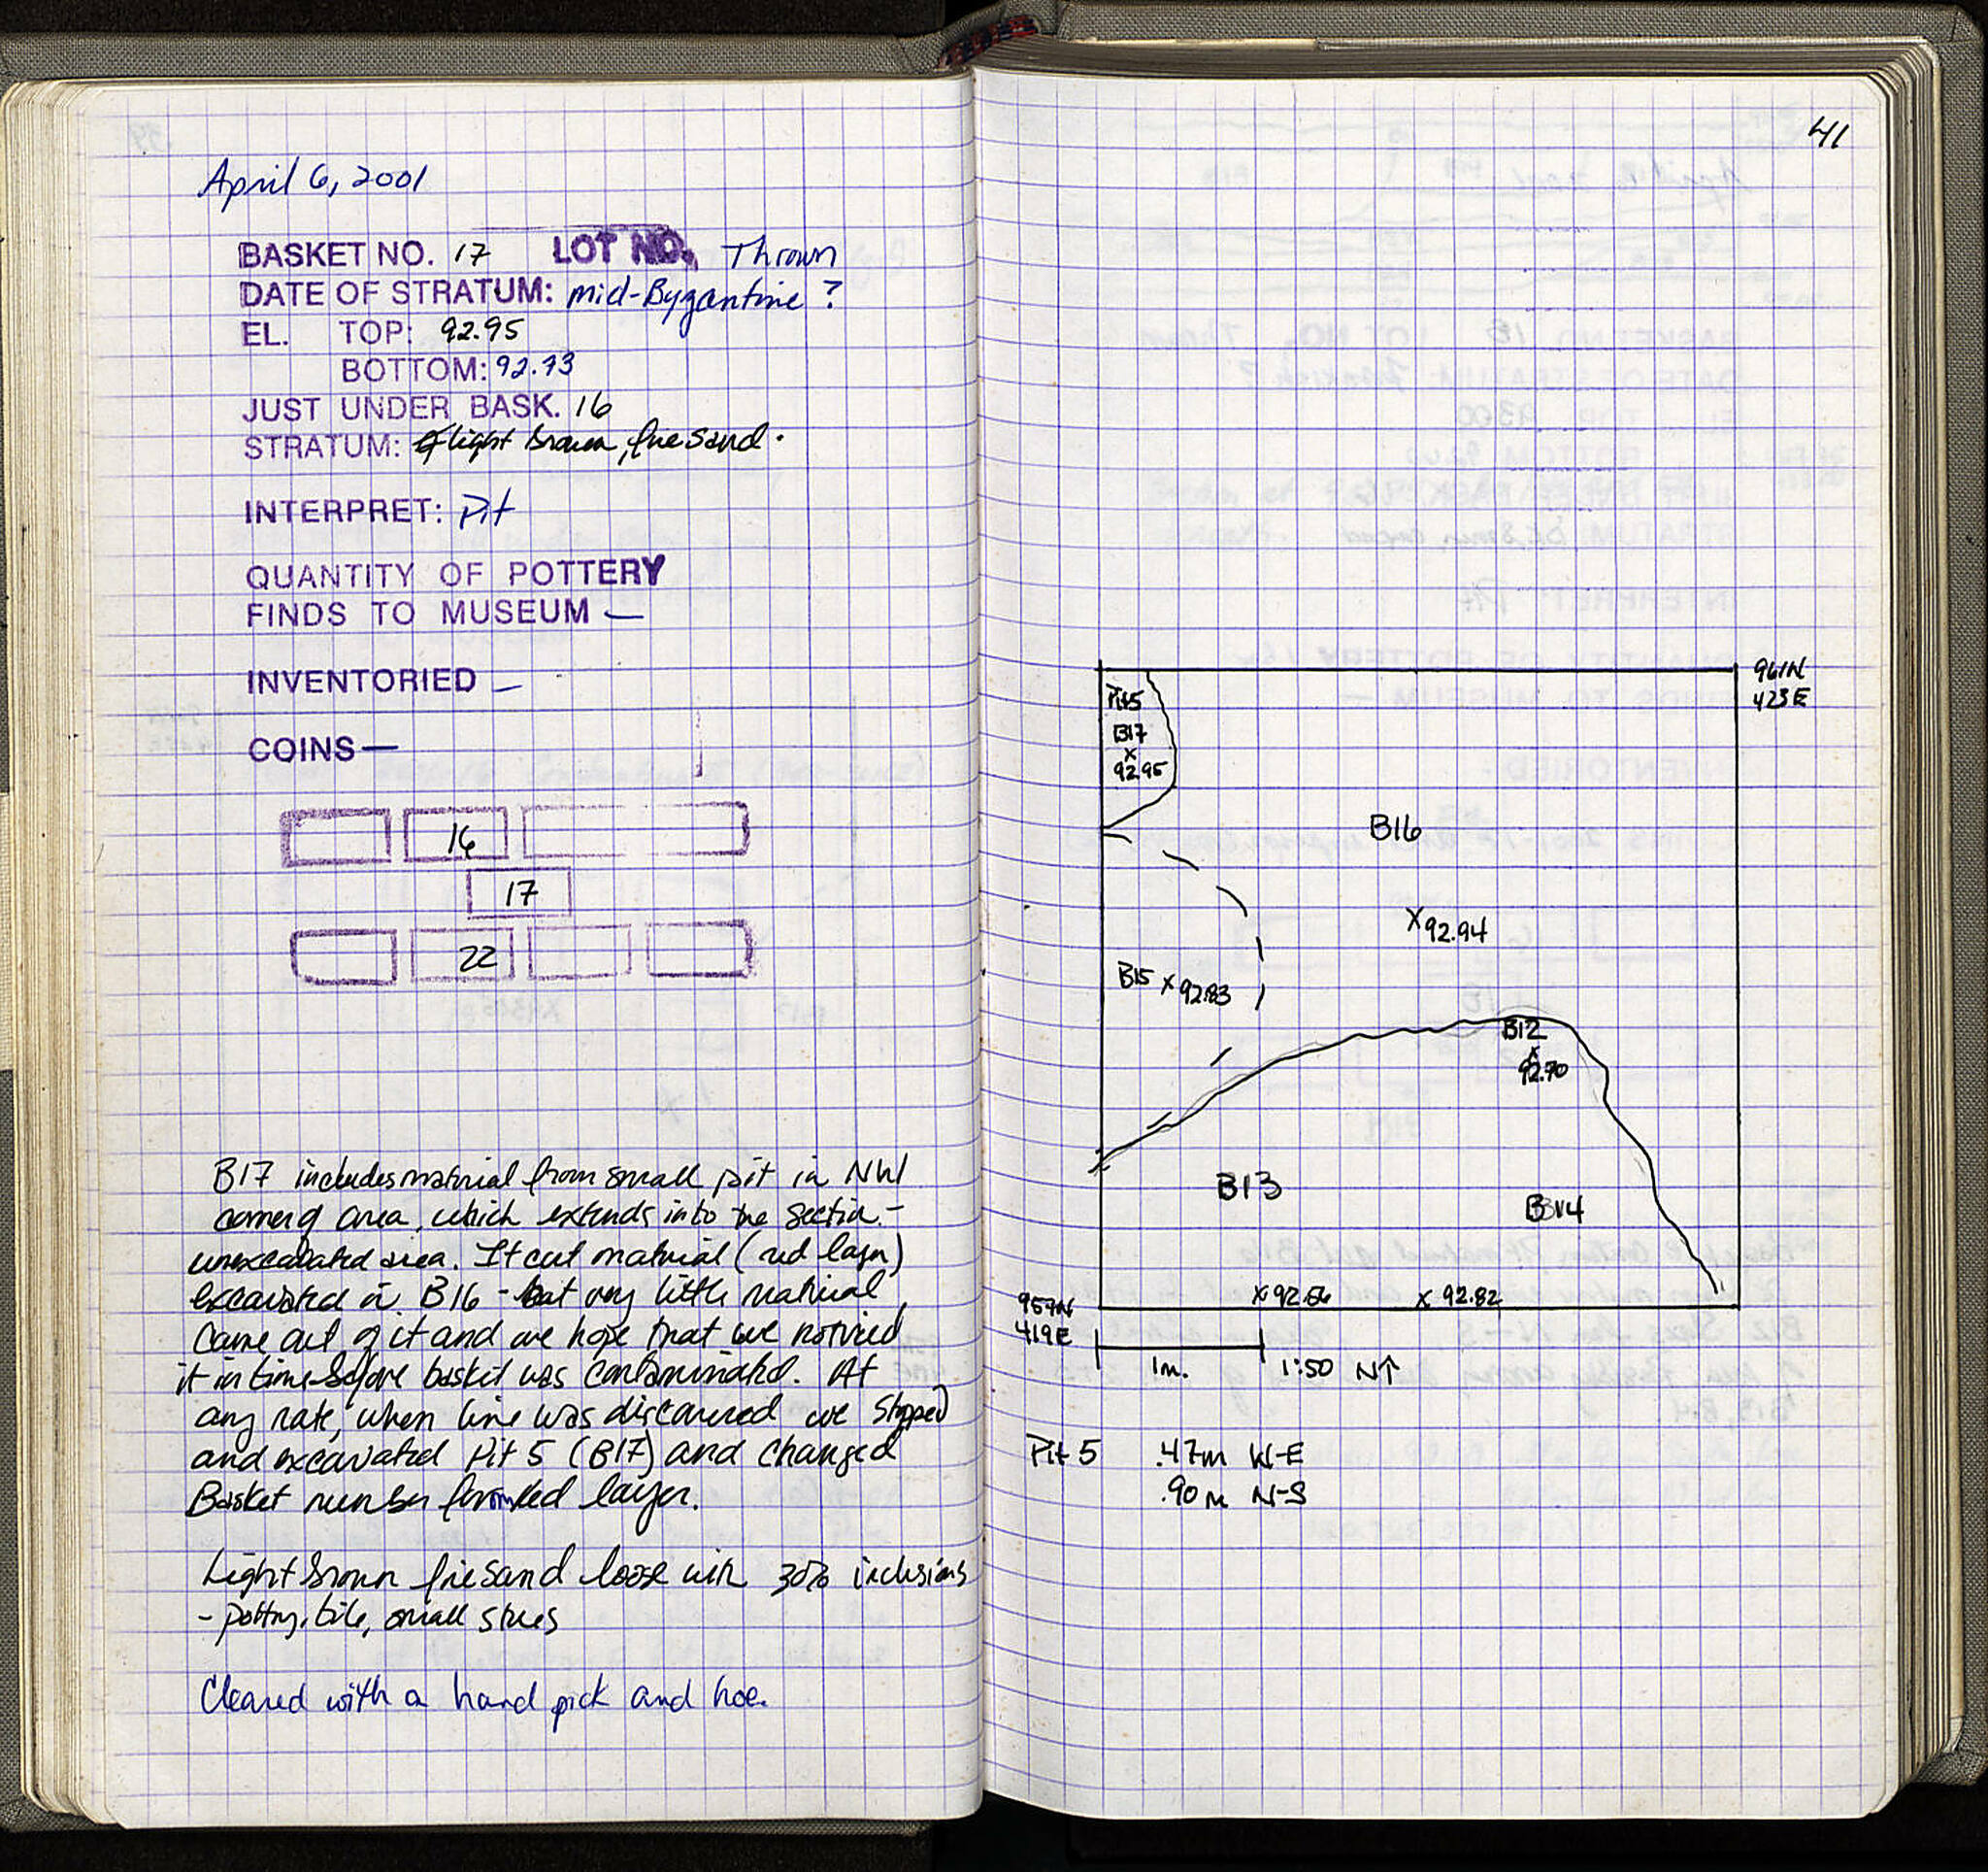 April 6, 2001
BASKET NO. 17 LOT NO. Thrown
DATE OF STRATUM: mid-Byzantine ?
EL. TOP: 92.95
BOTTOM: 92.73
JUST UNDER BASK. 16
STRATUM: light brown, fine sand.
INTERPRET: Pit
QUANTITY OF POTTERY
FINDS TO MUSEUM —
INVENTORIED —
COINS —
16
17
22
B17 includes material from small pit in NW
corner of area, which extends into the section -
unexcavated area. It cut material (red layer)
excavated in B16 - but very little material
came out of it and we hope that we noticed
it in time before basket was contaminated. At
any rate, when line was discovered we stopped
and excavated Pit 5 (B17) and changed
Basket number for red layer.
Light brown fine sand loose with 30% inclusions
- pottery, tile, small stones
Cleared with a hand pick and hoe.
41
961N
423E
Pit 5
B17
x
92.95
B16
x 92.94
B15 x 92.83
B12
x
92.70
B13
B14
x 92.82
959N
419E
1m. 1:50 N↑
Pit 5 .47m W-E
.90m N-S